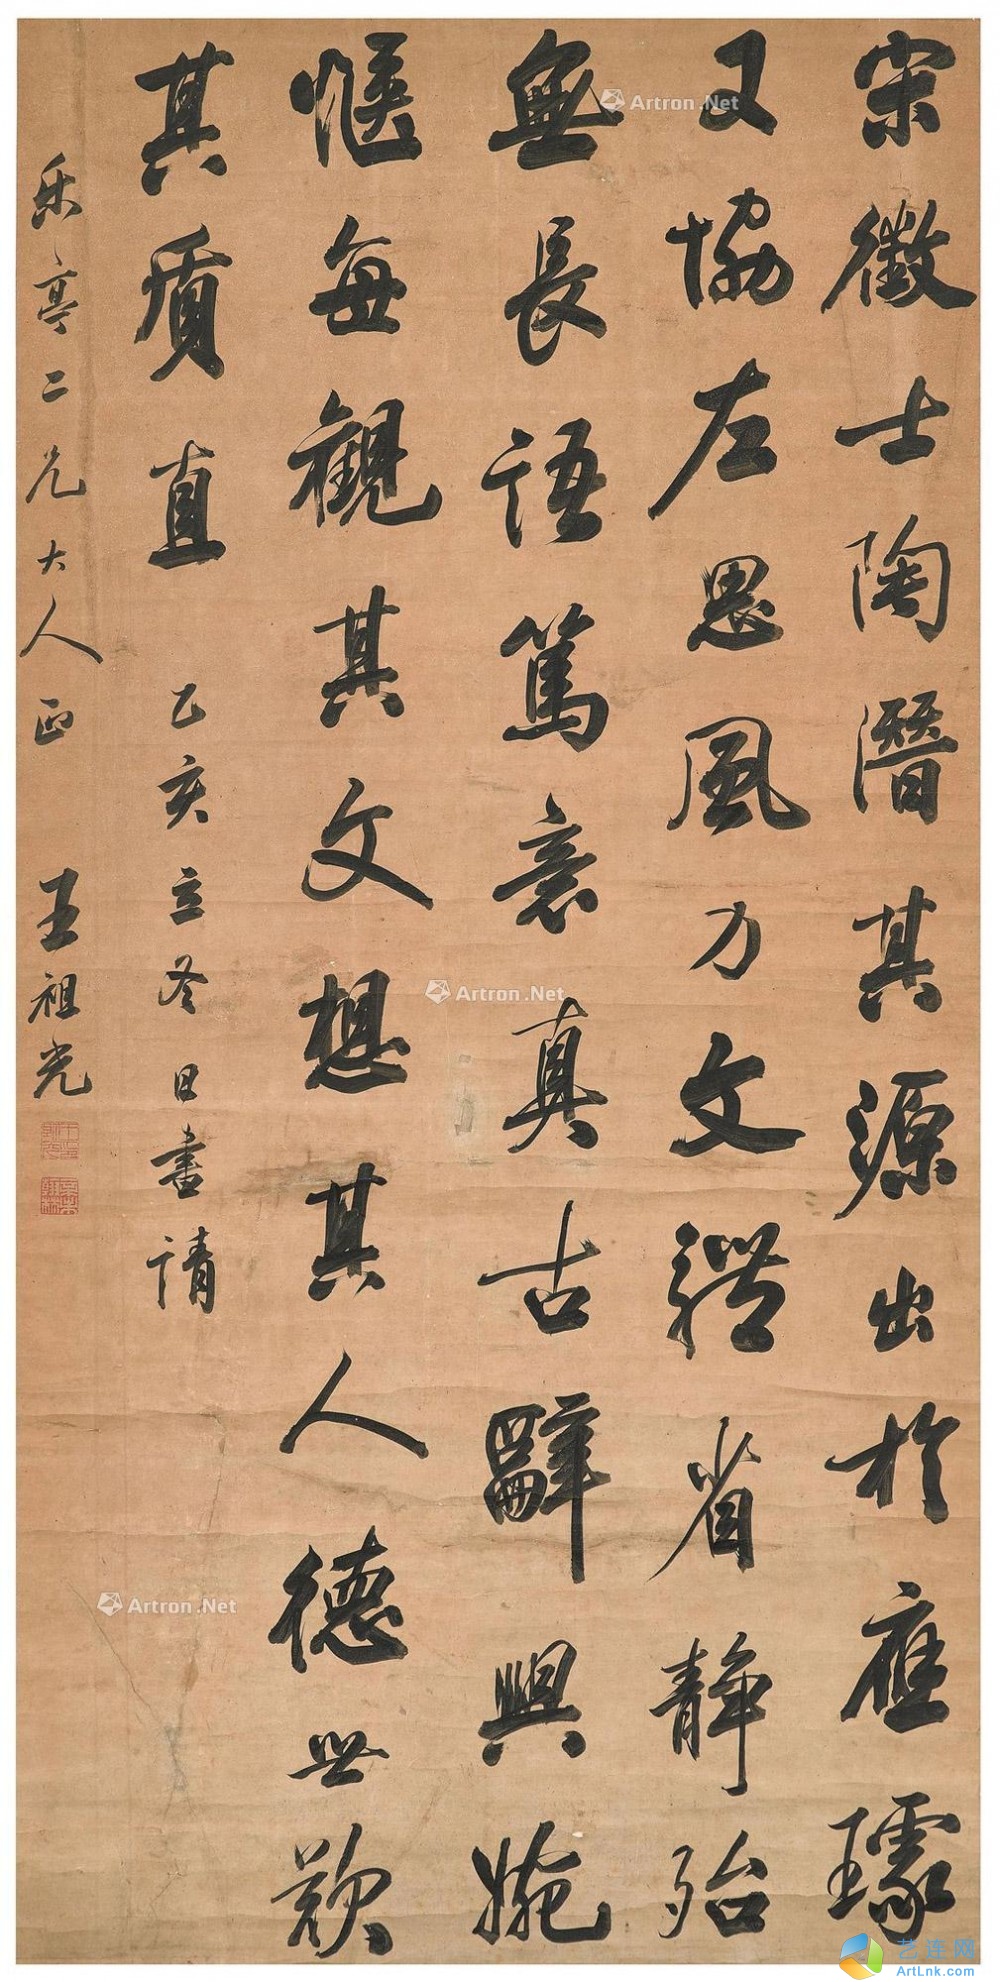 宋徵士陶潛其源出於應璩
又協左思風力文體省靜殆
無長語篤意真古辭興婉
愜每觀其文想其人德世歎
其質直
乙亥立冬日書請
乐亭二兄大人正
王祖光
Artron.Net
Artron.Net
Artron.Net
艺连网
ArtLnk.com